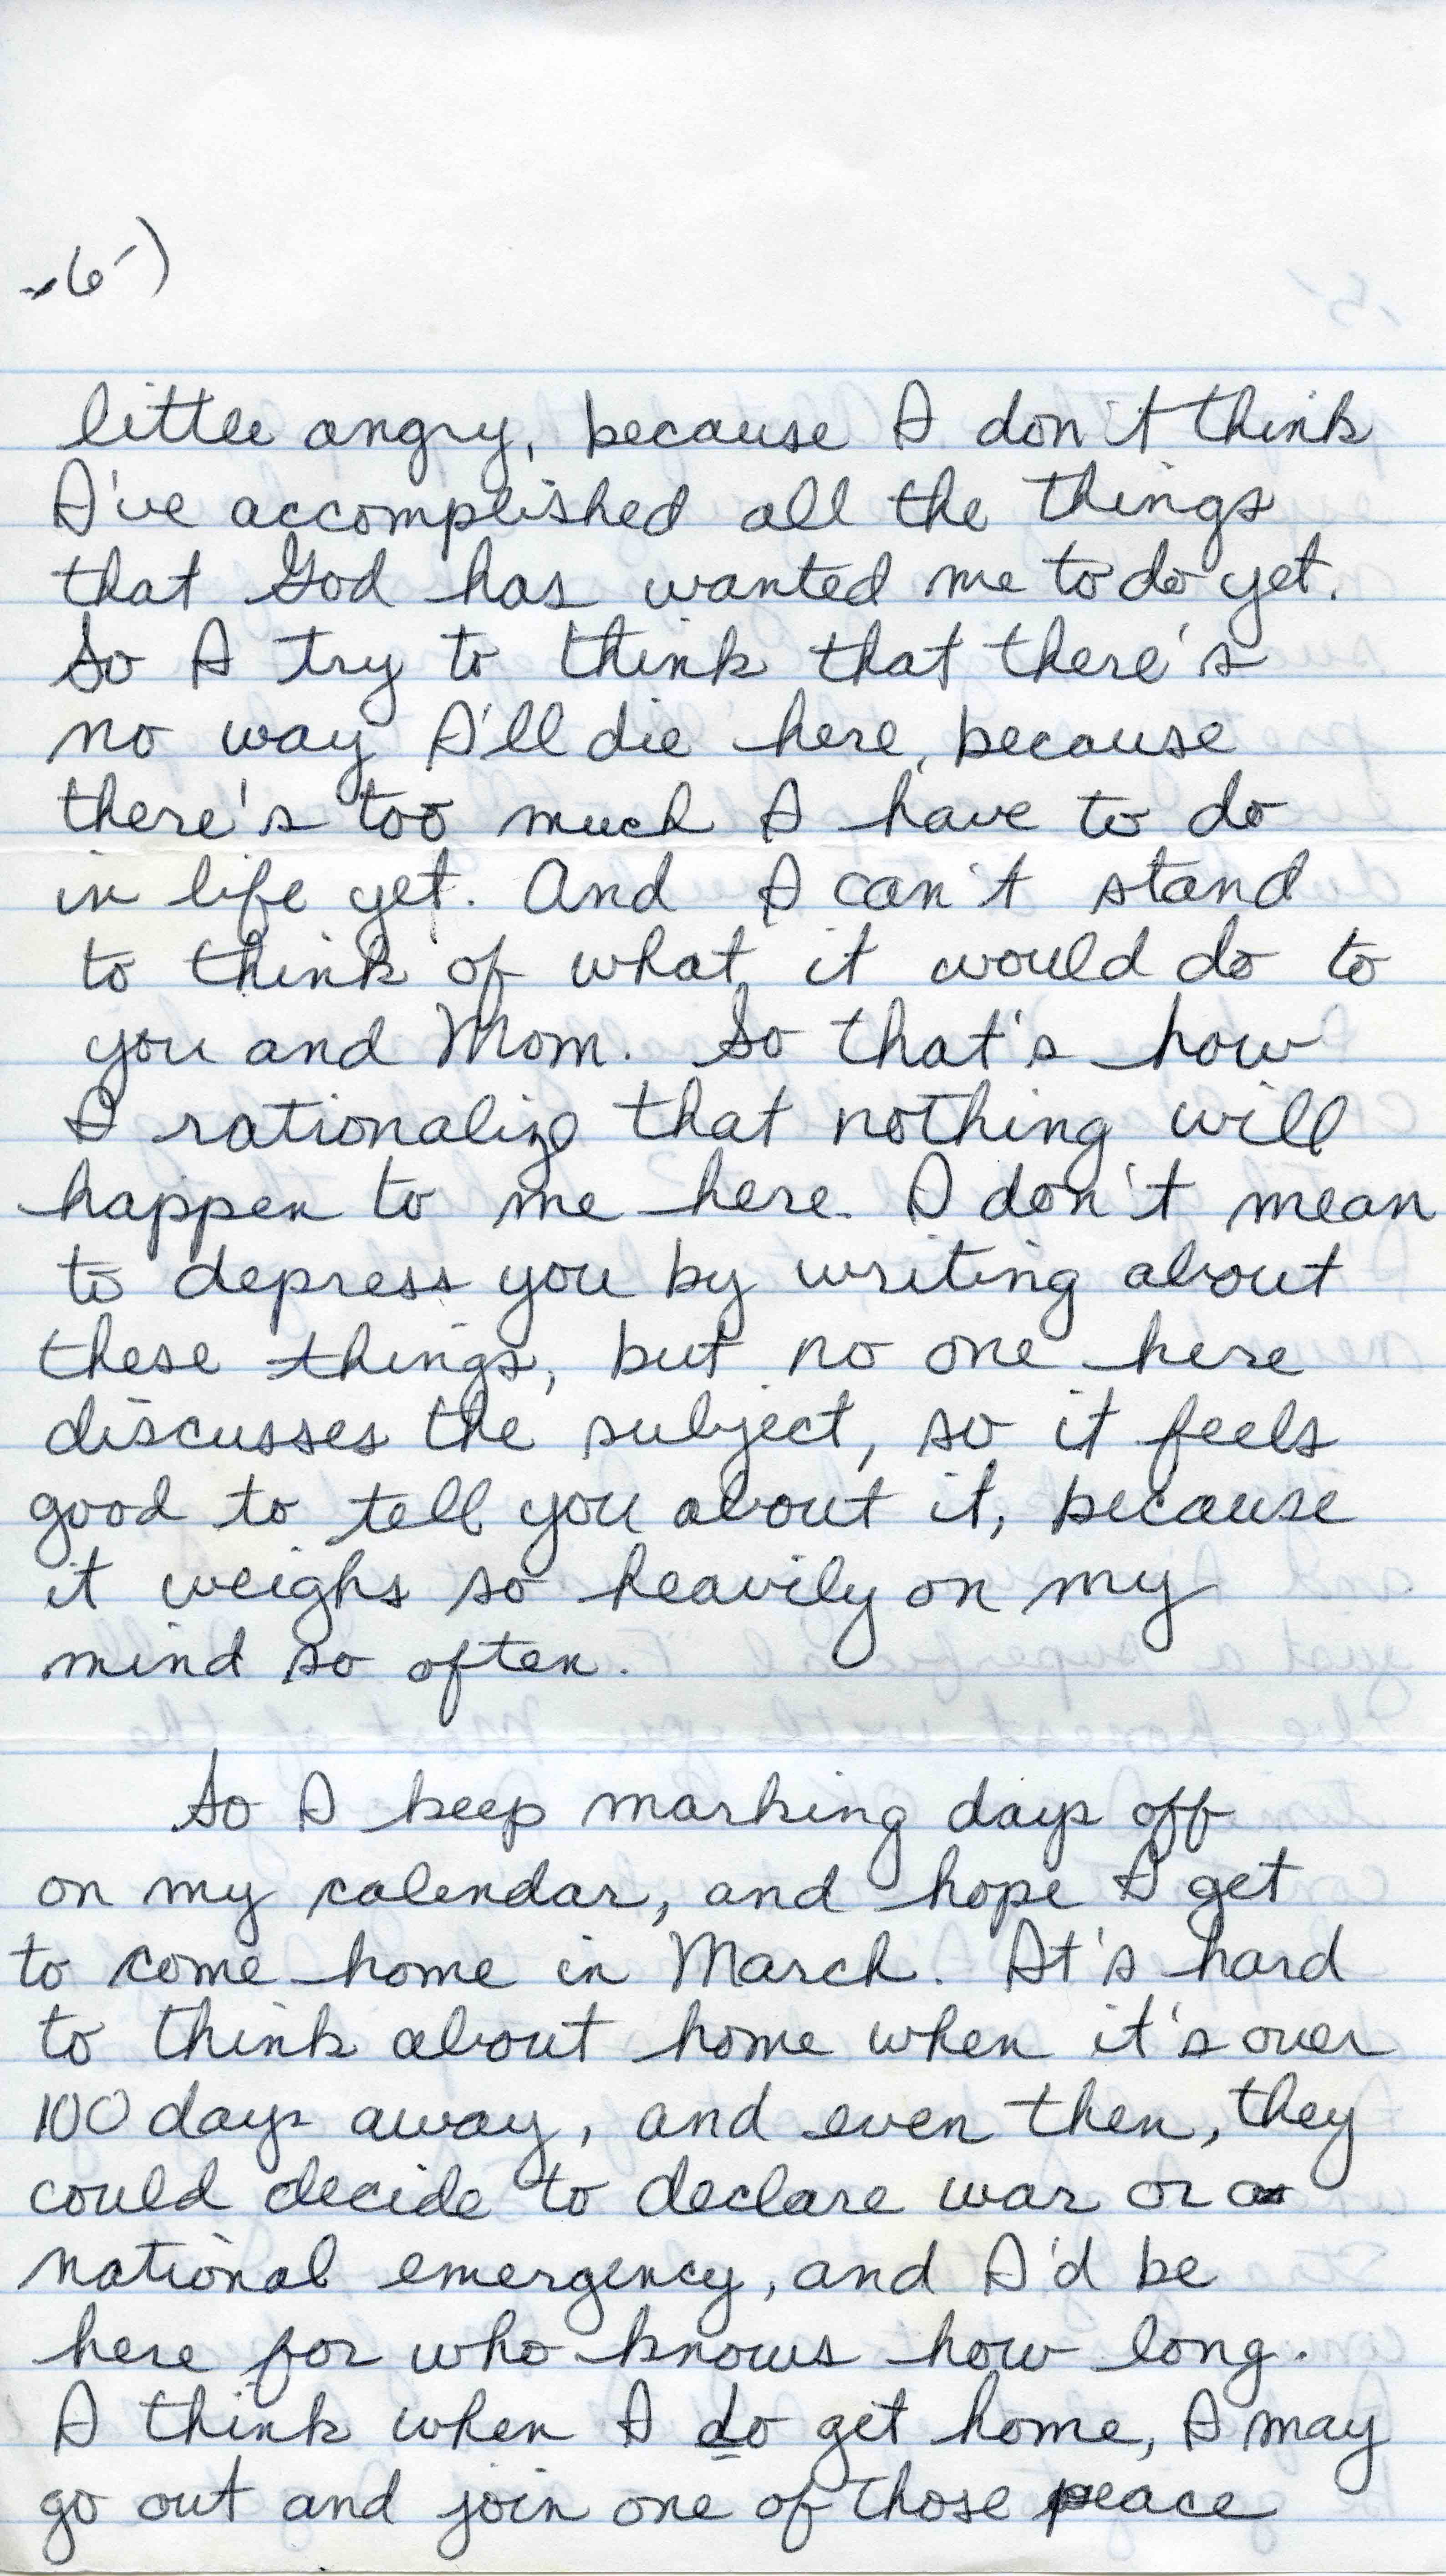 -6-)
little angry, because I don't think
I've accomplished all the things
that God has wanted me to do yet.
So I try to think that there's
no way I'll die here, because
there's too much I have to do
in life yet. And I can't stand
to think of what it would do to
you and Mom. So that's how
I rationalize that nothing will
happen to me here. I don't mean
to depress you by writing about
these things, but no one here
discusses the subject, so it feels
good to tell you about it, because
it weighs so heavily on my
mind so often.
So I keep marking days off
on my calendar, and hope I get
to come home in March. It's hard
to think about home when it's over
100 days away, and even then, they
could decide to declare war or a
national emergency, and I'd be
here for who knows how long.
I think when I do get home, I may
go out and join one of those peace